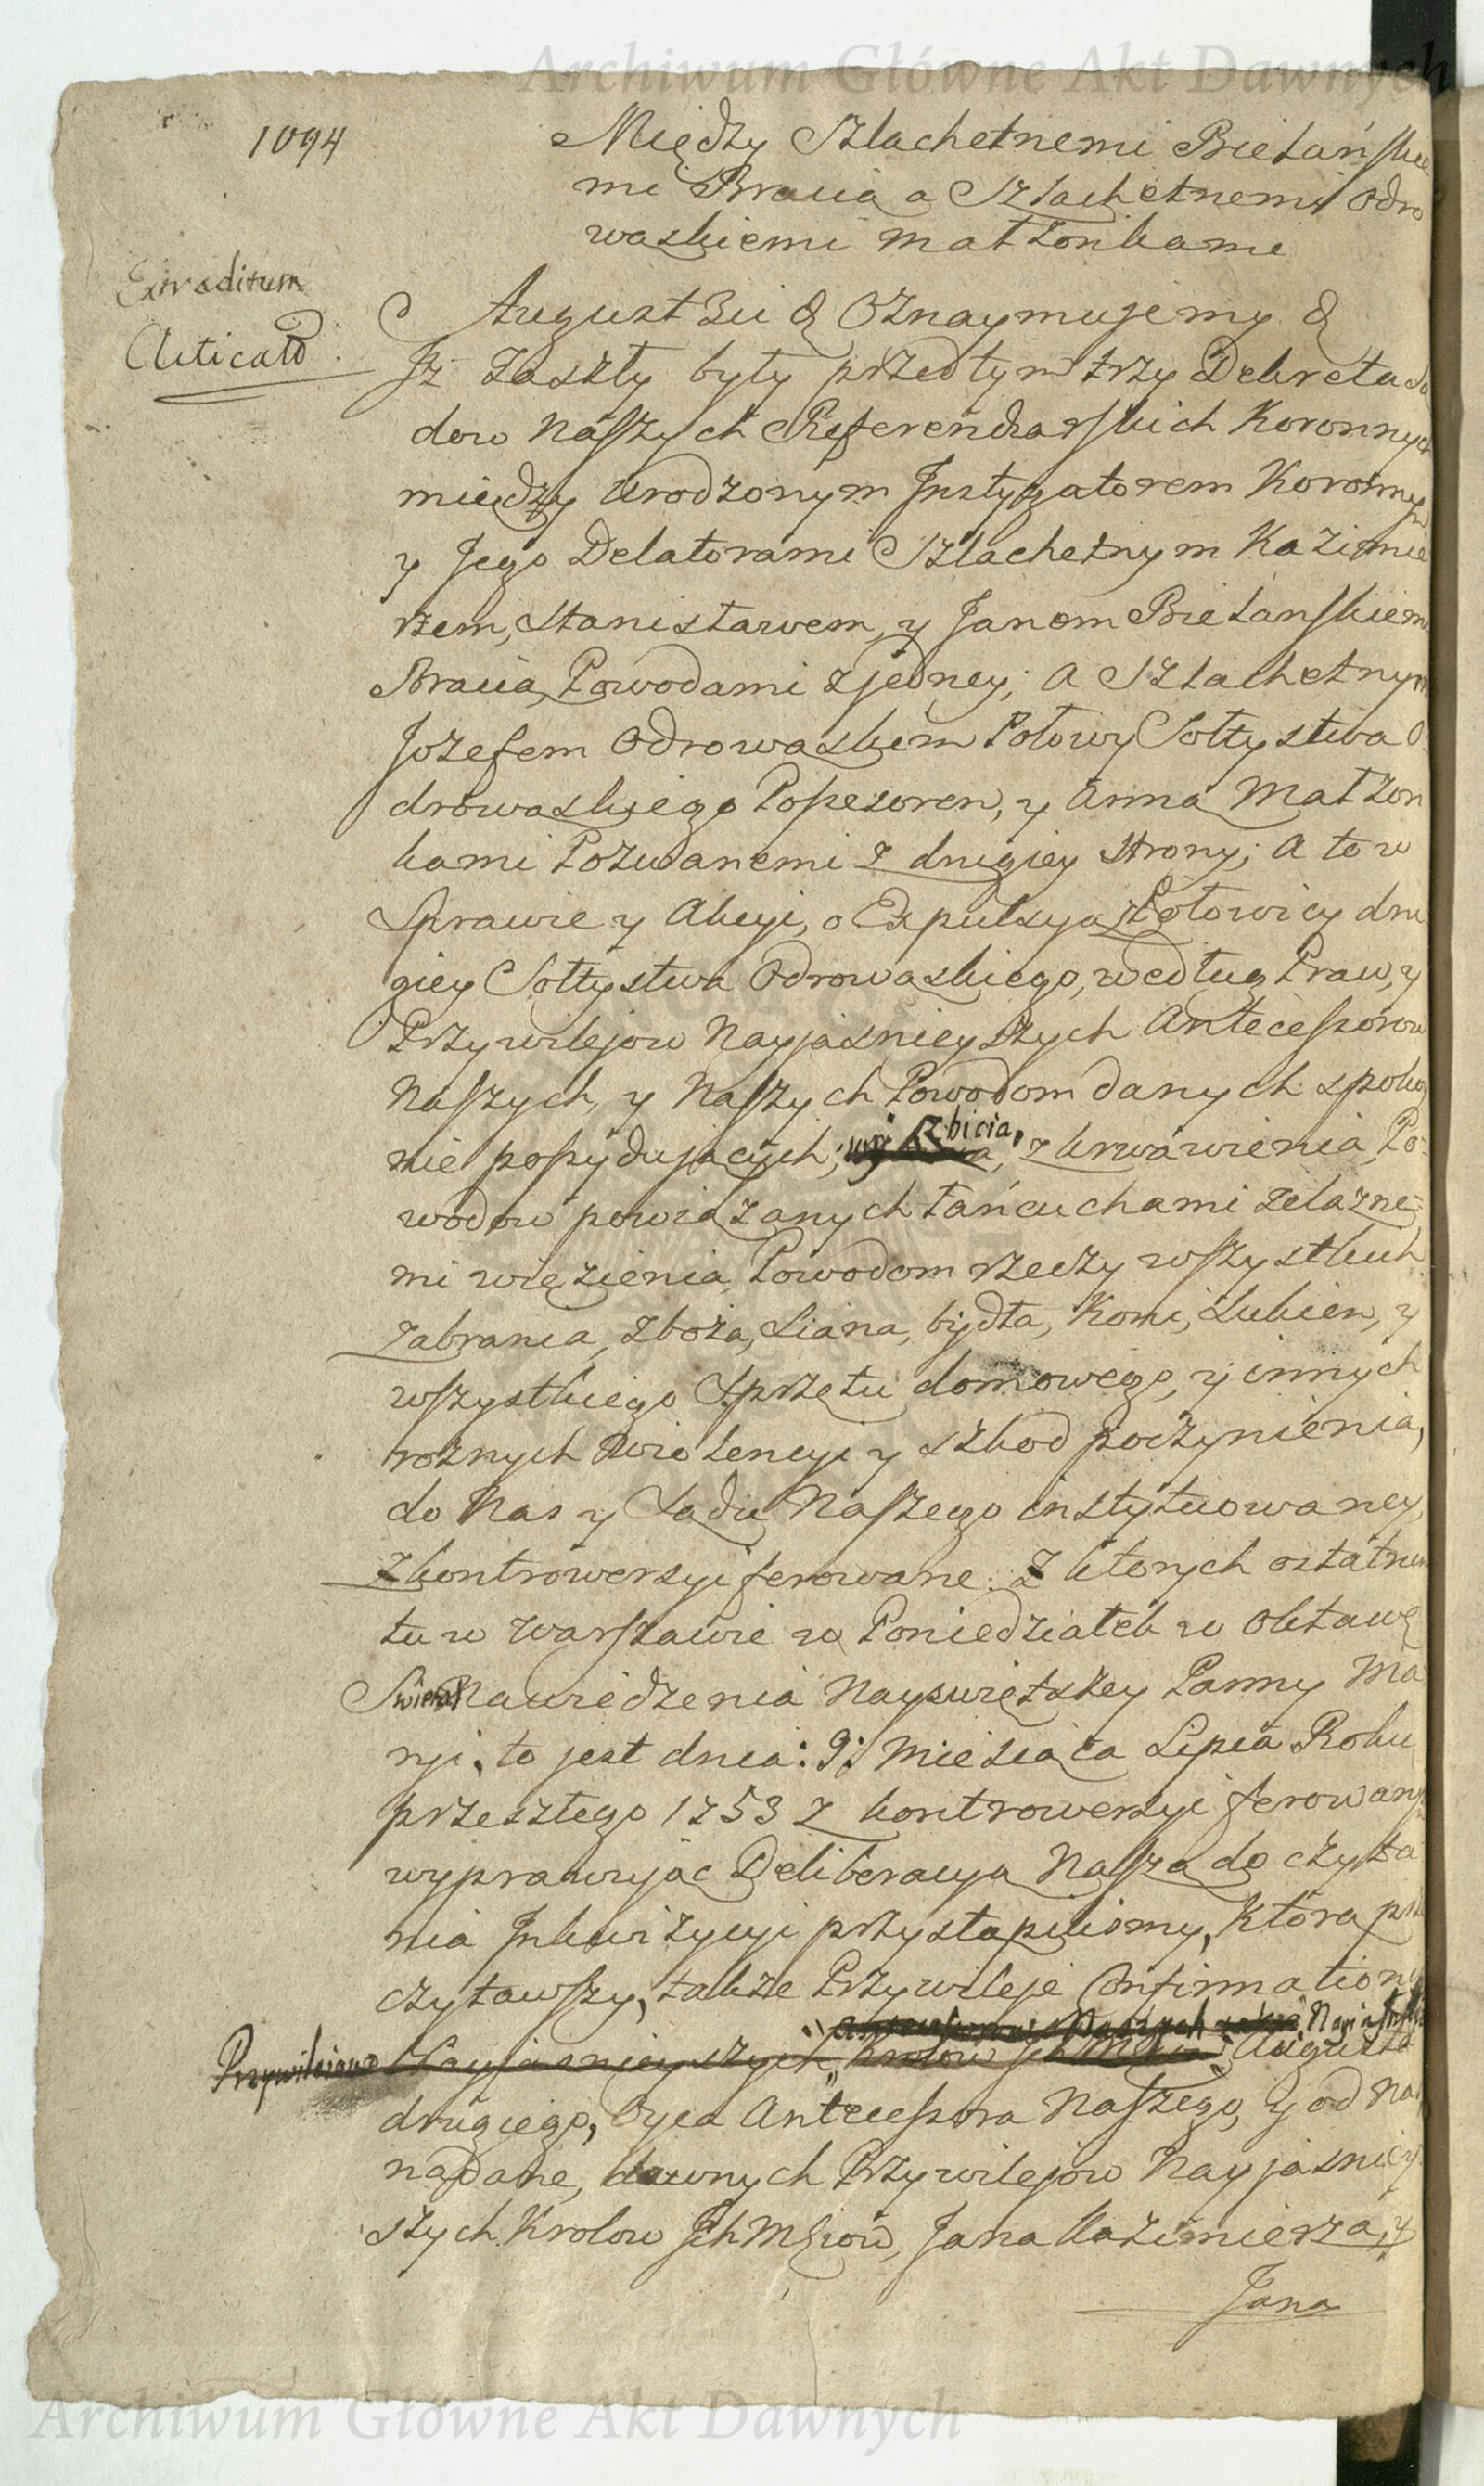 Archiwum Główne Akt Dawnych
1094
Między Szlachetnemi Bielańskie
mi Bracią a Szlachetnemi Odro
wąskiemi Małżonkami
Extraditum
Acticatō
August 3ci & Oznaymujemy &
Iż zaszły były przedtym trzy Dekreta Są
dow Naszych Referendarskich Koronnych
między Urodzonym Instygatorem Koronnym
y Jego Delatorami Szlachetnym Kazimie
rzem, Stanisławem, y Janem Bielanskiemi
Bracią, Powodami z jedney; a Szlachetnym
Jozefem Odrowąskiem Połowy Sołtystwa O
drowąskiego Possesorem, y Anną Małżon
kami Pozwanemi z drugiey strony; a to w
Sprawie y Akcyi, o Expulsyą z Połowicy dru
giey Sołtystwa Odrowąskiego, według Praw, y
Przywilejow Nayjasnieyszych Antecessorow
Naszych, y Naszych Powodom danych spokoy
nie possydujących, zbicia, zkrwawienia, Po=
wodow powiązanych łańcuchami zelazne=
mi więzienia, Powodom rzeczy wszystkich
zabrania, zboża, Siana, bydła, Koni, Sukien, y
wszystkiego Sprzętu domowego, y innych
roznych Wiolencyi y szkod poczynienia,
do Nas y Sądu Naszego instytuowaney,
z kontrowersyi ferowane. Z ktorych ostatnim
tu w Warszawie w Poniedziałek w Oktawę
Swięta Nawiedzenia Nayswiętszey Panny Ma
ryi, to jest dnia: 9: Miesiąca Lipca Roku
przeszłego 1753 z kontrowersyi ferowanym
wyprawując Deliberacyą Naszą do czyta
nia Inkwizycyi przystąpilismy, Ktorą prze
czytawszy, także Przywileje Confirmationis
Antecessorow Naszych Nayjasnieysz
Przywilejow Nayjasnieyszych Krolow Ich Mciow Augusta
drugiego, Oyca Antecessora Naszego, y od Nas
nadane, dawnych Przywilejow Nayjasniey
szych Krolow Ich Mciow, Jana Kazimierza, y
Jana
Archiwum Główne Akt Dawnych